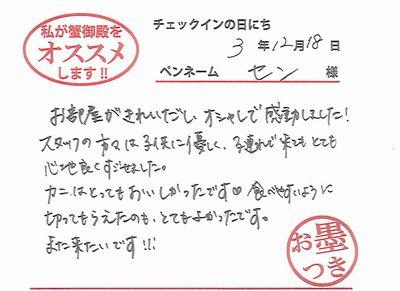 私が蟹御殿を
オススメ
します!!
チェックインの日にち
3年12月18日
ペンネーム セン 様
お部屋がきれいだし、オシャレで感動しました!
スタッフの方々は子供に優しく、子連れで来てもとても
心地良くすごせました。
カニはとってもおいしかったです♡食べやすいように
切ってもらえたのも、とてもよかったです。
また来たいです!!!
お墨
つき